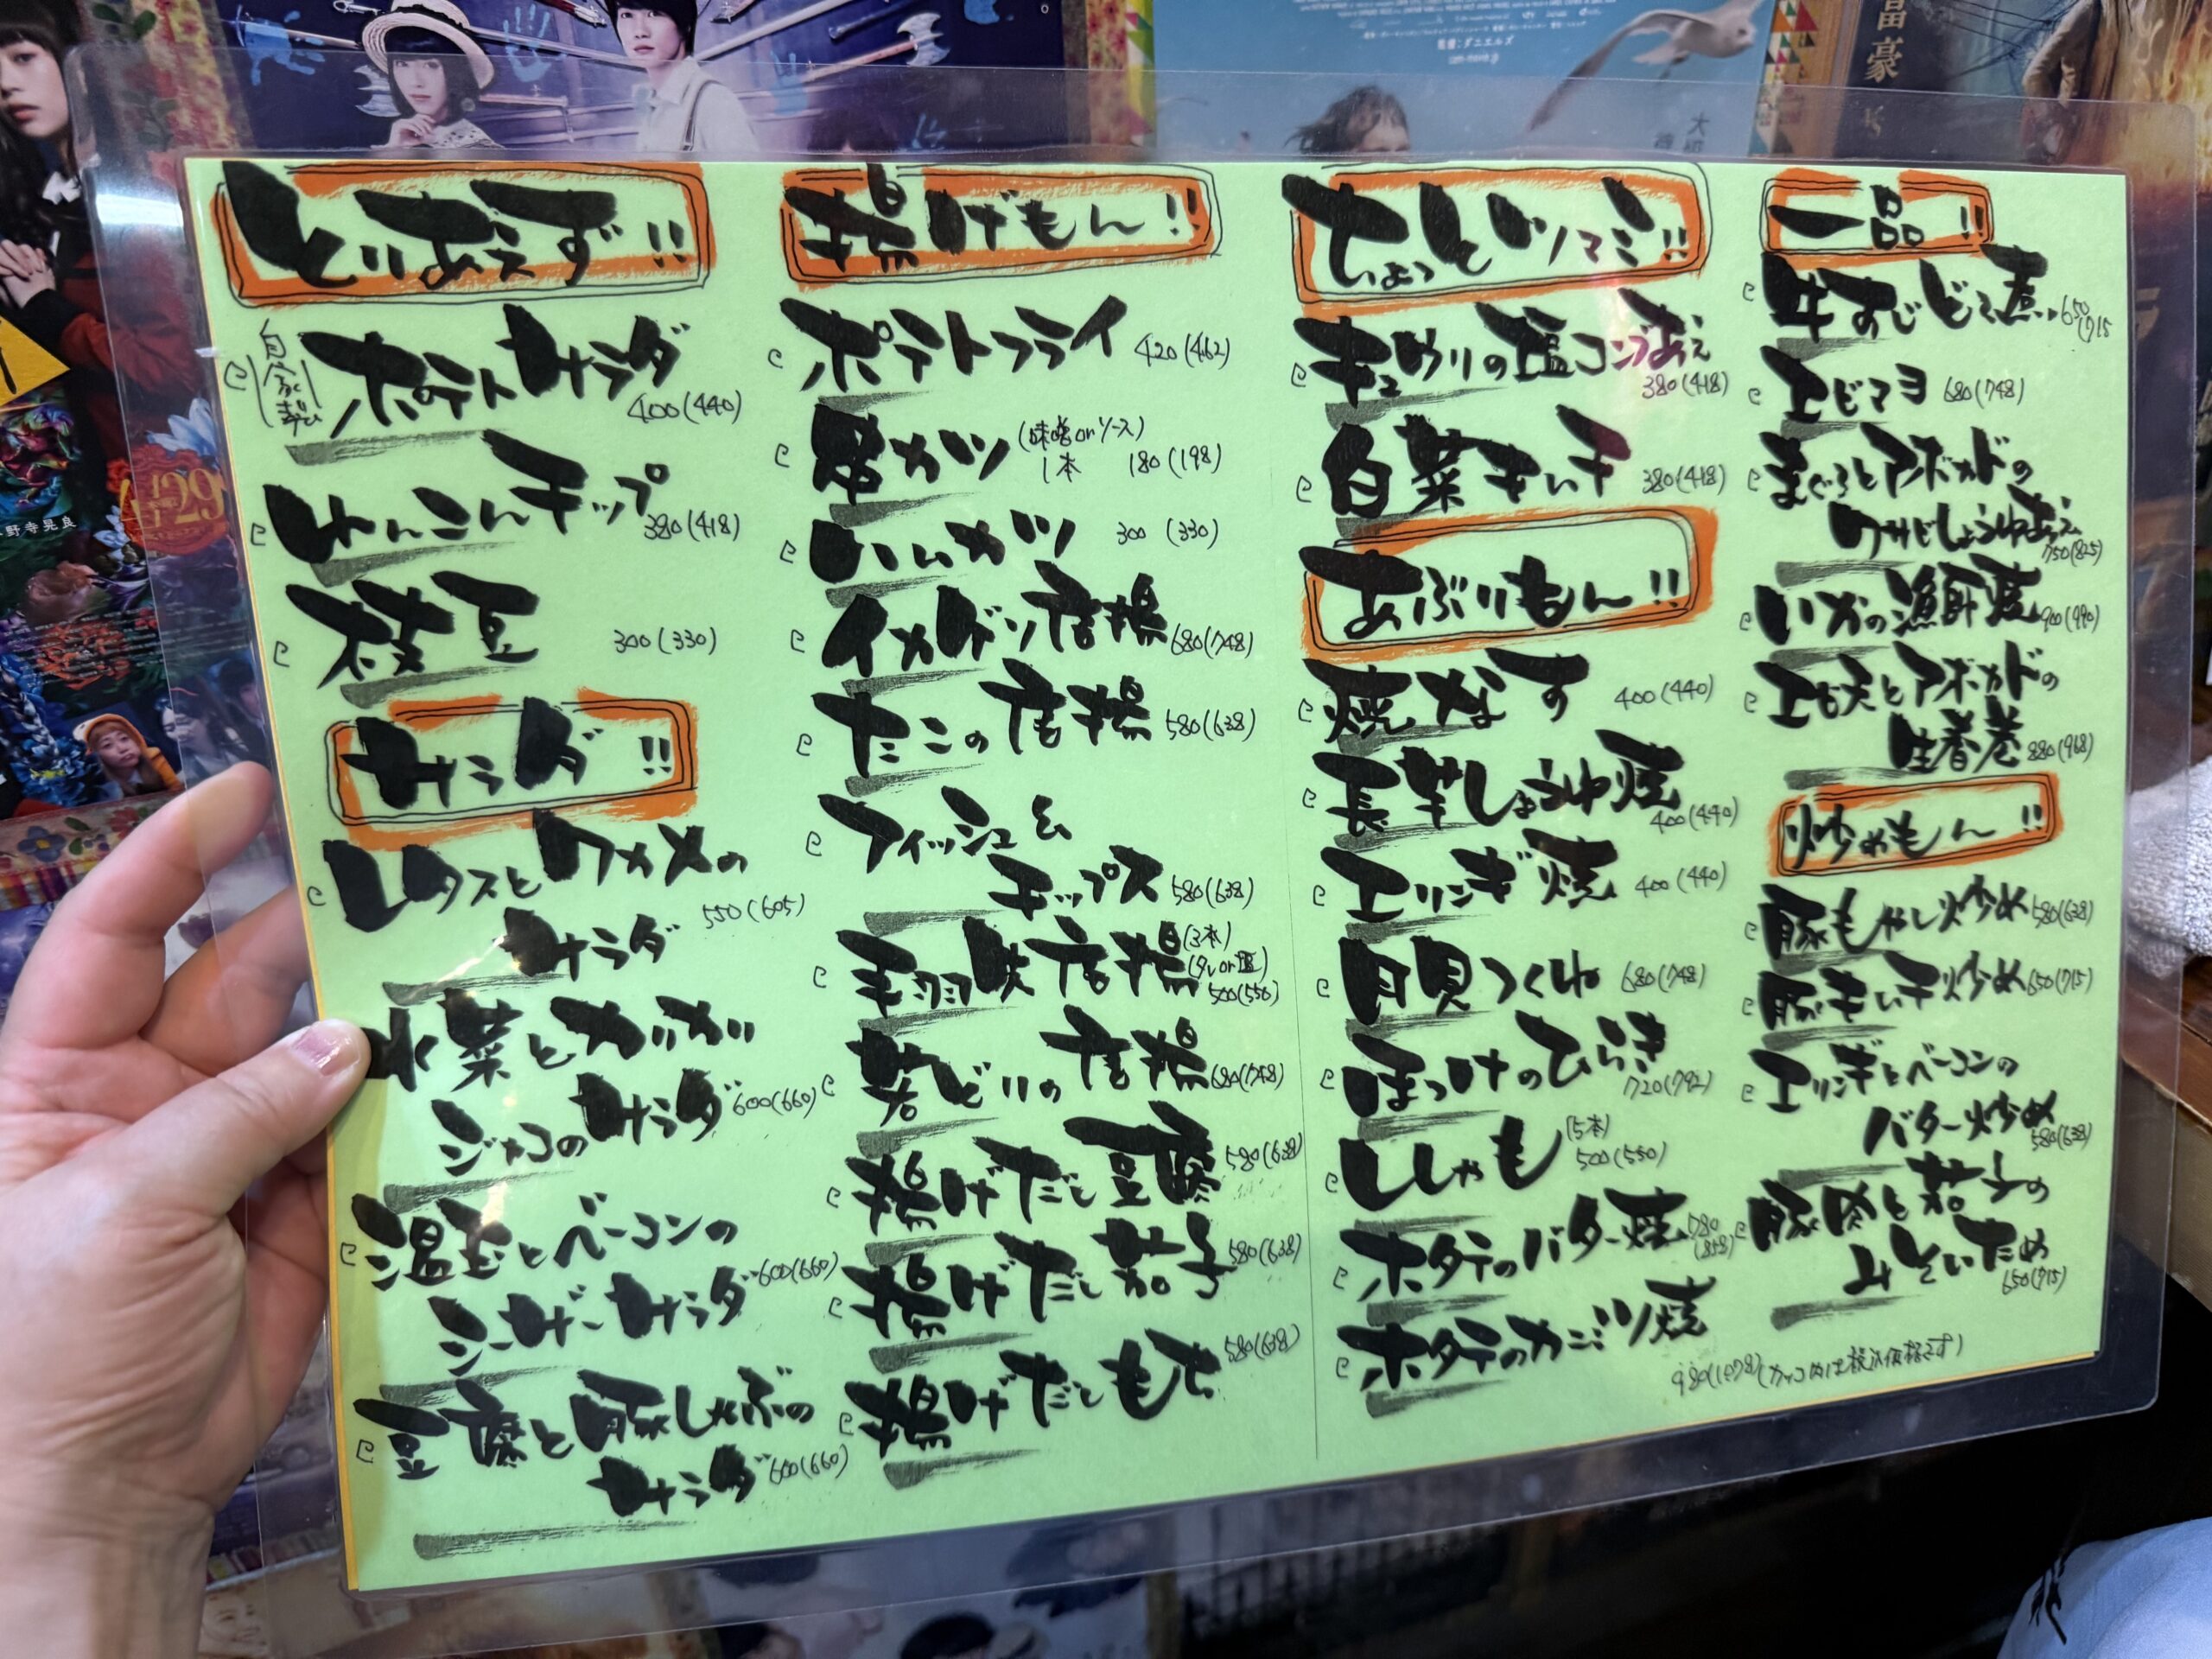 とりあえず!!
自家製
ポテトサラダ
400(440)
れんこんチップ
380(418)
枝豆 300(330)
サラダ!!
レタスとワカメの
サラダ 550(605)
水菜とカリカリ
ジャコのサラダ 600(660)
温玉とベーコンの
シーザーサラダ 600(660)
豆腐と豚しゃぶの
サラダ 600(660)
揚げもん!!
ポテトフライ 420(462)
串カツ (味噌orソース)
1本 180(198)
ハムカツ 300(330)
イカゲソ唐揚 680(748)
たこの唐揚 580(638)
フィッシュ&
チップス 580(638)
手羽先唐揚 (3本)
(タレor塩)
500(550)
若どりの唐揚 680(748)
揚げだし豆腐 580(638)
揚げだし茄子 580(638)
揚げだしもち 580(638)
ちょっとツマミ!!
キュウリの塩コンブあえ
380(418)
白菜キムチ 380(418)
あぶりもん!!
焼なす 400(440)
長芋しょうゆ焼
400(440)
エリンギ焼 400(440)
月見つくね 680(748)
ほっけのひらき
720(792)
ししゃも (5本)
500(550)
ホタテのバター焼 780
(858)
ホタテのカニミソ焼
980(1078)
一品!!
牛すじどて煮 650
(715
エビマヨ 680(748)
まぐろとアボカドの
ワサビしょうゆあえ
750(825)
いかの漁師漬 900(990)
エビ天とアボカドの
生春巻 880(968)
炒めもん!!
豚もやし炒め 580(638)
豚キムチ炒め 650(715)
エリンギとベーコンの
バター炒め
580(638)
豚肉と茄子の
みそいため
650(715)
(カッコ内は税込価格です)
富豪
監督:ダニエルズ
野寺晃良
29